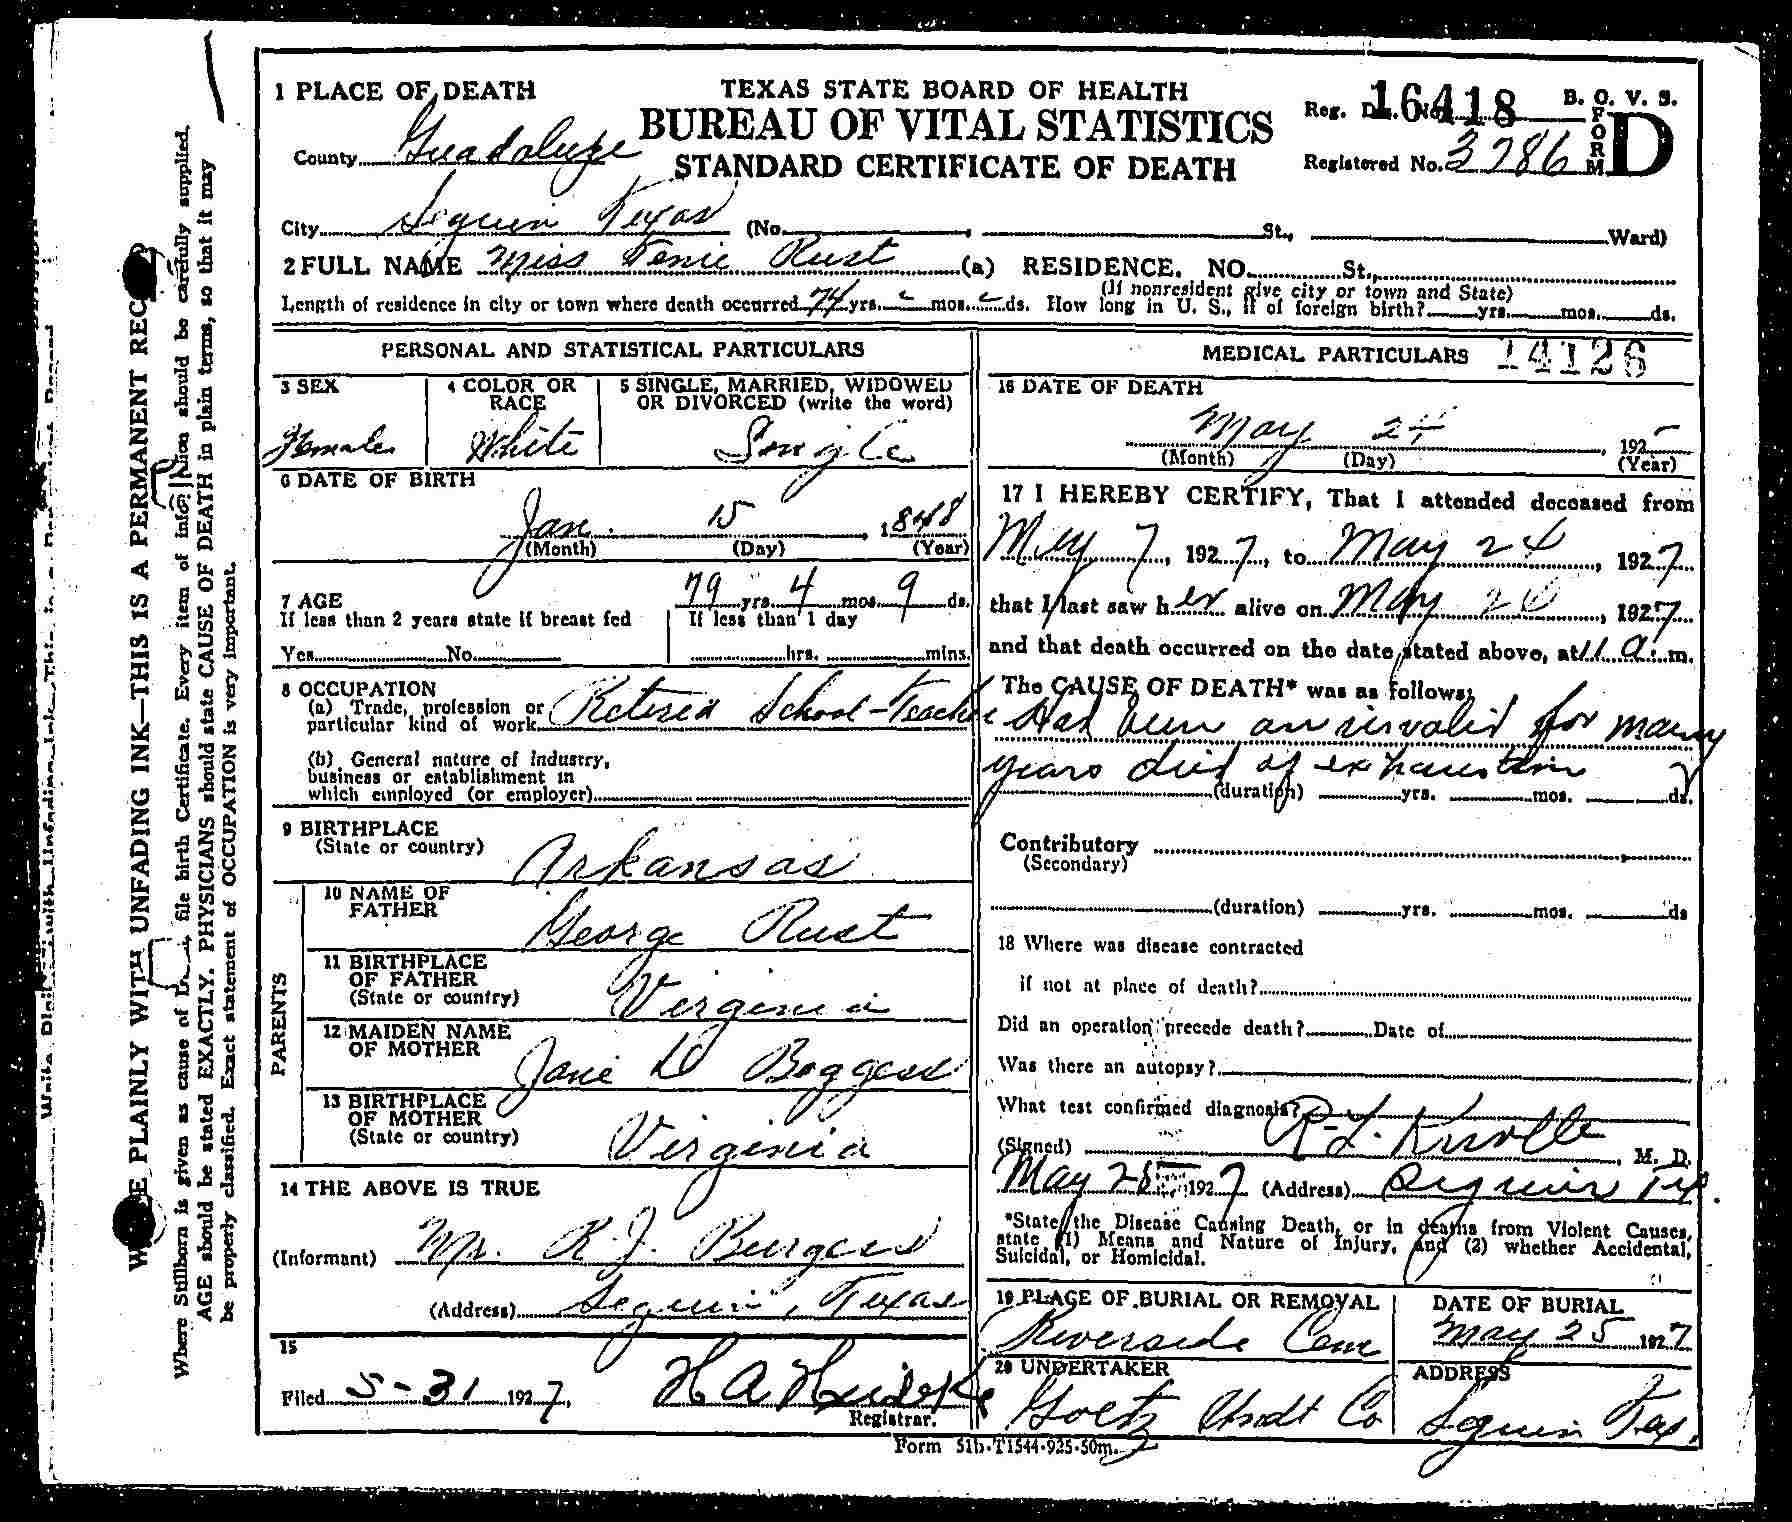 TEXAS STATE BOARD OF HEALTH
BUREAU OF VITAL STATISTICS
STANDARD CERTIFICATE OF DEATH
16418
B. O. V. S.
FORM D
Registered No. 3786
1 PLACE OF DEATH
County Guadalupe
City Seguin Texas (No. , St., Ward)
2 FULL NAME Miss Rust (a) RESIDENCE. NO. St.,
(If nonresident give city or town and State)
Length of residence in city or town where death occurred 74 yrs. mos. ds. How long in U. S., if of foreign birth? yrs. mos. ds.
PERSONAL AND STATISTICAL PARTICULARS
3 SEX
Female
4 COLOR OR RACE
White
5 SINGLE, MARRIED, WIDOWED OR DIVORCED (write the word)
Single
6 DATE OF BIRTH
Jan. 15, 1848
(Month) (Day) (Year)
7 AGE 79 yrs. 4 mos. 9 ds.
If less than 2 years state if breast fed
Yes No
If less than 1 day
hrs. mins.
8 OCCUPATION
(a) Trade, profession or
particular kind of work Retired School-Teacher
(b) General nature of Industry,
business or establishment in
which employed (or employer)
9 BIRTHPLACE
(State or country) Arkansas
PARENTS
10 NAME OF FATHER George Rust
11 BIRTHPLACE OF FATHER
(State or country) Virginia
12 MAIDEN NAME OF MOTHER Jane Boggess
13 BIRTHPLACE OF MOTHER
(State or country) Virginia
14 THE ABOVE IS TRUE
(Informant) R. J. Burgess
(Address) Seguin, Texas
15
Filed 5-31 1927, H A
Registrar.
MEDICAL PARTICULARS 14126
16 DATE OF DEATH
May 24, 192
(Month) (Day) (Year)
17 I HEREBY CERTIFY, That I attended deceased from
May 7, 1927, to May 24, 1927
that I last saw her alive on May, 1927
and that death occurred on the date stated above, at 11 a. m.
The CAUSE OF DEATH* was as follows:
Had been an invalid for many
years died of exhaustion
(duration) yrs. mos. ds.
Contributory
(Secondary)
(duration) yrs. mos. ds
18 Where was disease contracted
if not at place of death?
Did an operation precede death? Date of
Was there an autopsy?
What test confirmed diagnosis?
(Signed) R. L. , M. D.
May 25 1927 (Address) Seguin Tex.
*State the Disease Causing Death, or in deaths from Violent Causes,
state (1) Means and Nature of Injury, and (2) whether Accidental,
Suicidal, or Homicidal.
19 PLACE OF BURIAL OR REMOVAL
Riverside Cem
DATE OF BURIAL
May 25 1927
20 UNDERTAKER
Goetz Undt Co
ADDRESS
Seguin Tex.
Form 51b-T1544-925-50m.
PLAINLY WITH UNFADING INK—THIS IS A PERMANENT
Where Stillborn is given as cause of file birth Certificate. Every item of should be carefully supplied.
AGE should be stated EXACTLY. PHYSICIANS should state CAUSE OF DEATH in plain terms, so that it may
be properly classified. Exact statement of OCCUPATION is very important.